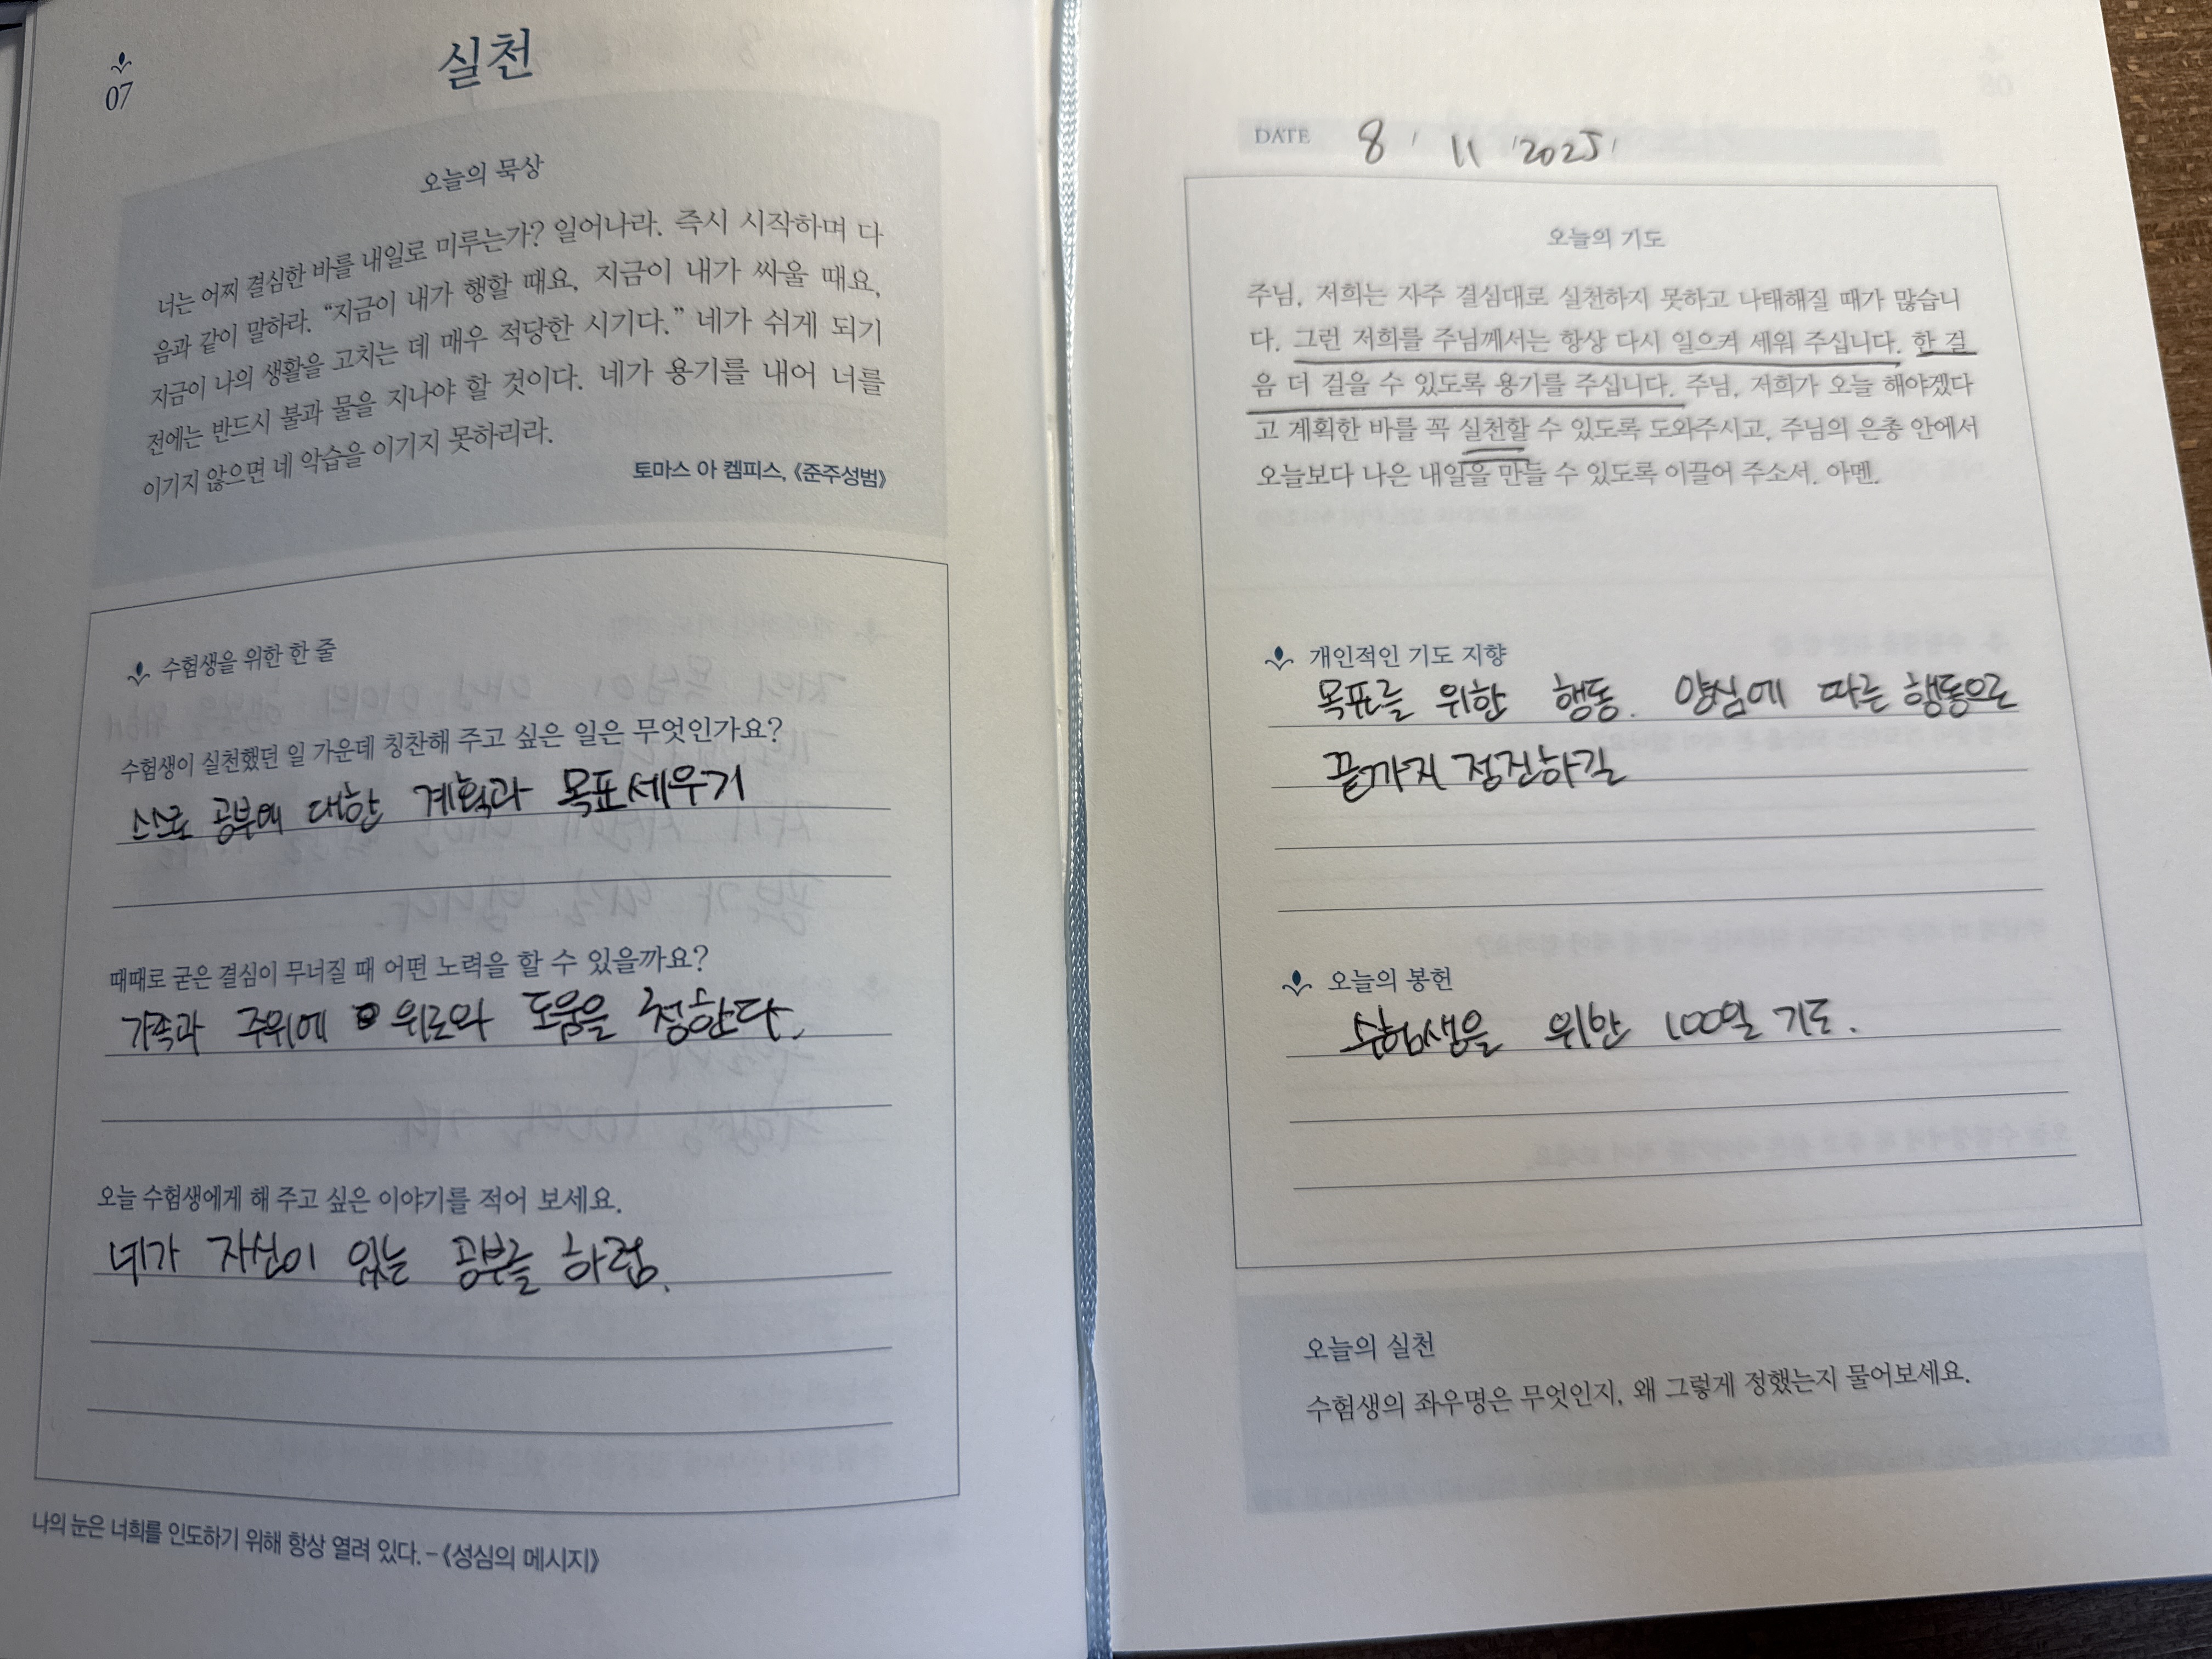 07
실천
오늘의 묵상
너는 어찌 결심한 바를 내일로 미루는가? 일어나라. 즉시 시작하며 다
음과 같이 말하라. “지금이 내가 행할 때요, 지금이 내가 싸울 때요,
지금이 나의 생활을 고치는 데 매우 적당한 시기다.” 네가 쉬게 되기
전에는 반드시 불과 물을 지나야 할 것이다. 네가 용기를 내어 너를
이기지 않으면 네 악습을 이기지 못하리라.
토마스 아 켐피스, 《준주성범》
수험생을 위한 한 줄
수험생이 실천했던 일 가운데 칭찬해 주고 싶은 일은 무엇인가요?
스스로 공부에 대한 계획과 목표세우기
때때로 굳은 결심이 무너질 때 어떤 노력을 할 수 있을까요?
가족과 주위에 위로와 도움을 청한다.
오늘 수험생에게 해 주고 싶은 이야기를 적어 보세요.
네가 자신이 있는 공부를 하렴.
나의 눈은 너희를 인도하기 위해 항상 열려 있다. - 《성심의 메시지》
DATE 8 / 11 / 2025 /
오늘의 기도
주님, 저희는 자주 결심대로 실천하지 못하고 나태해질 때가 많습니
다. 그런 저희를 주님께서는 항상 다시 일으켜 세워 주십니다. 한 걸
음 더 걸을 수 있도록 용기를 주십니다. 주님, 저희가 오늘 해야겠다
고 계획한 바를 꼭 실천할 수 있도록 도와주시고, 주님의 은총 안에서
오늘보다 나은 내일을 만들 수 있도록 이끌어 주소서. 아멘.
개인적인 기도 지향
목표를 위한 행동. 양심에 따른 행동으로
끝까지 정진하길
오늘의 봉헌
수험생을 위한 100일 기도.
오늘의 실천
수험생의 좌우명은 무엇인지, 왜 그렇게 정했는지 물어보세요.